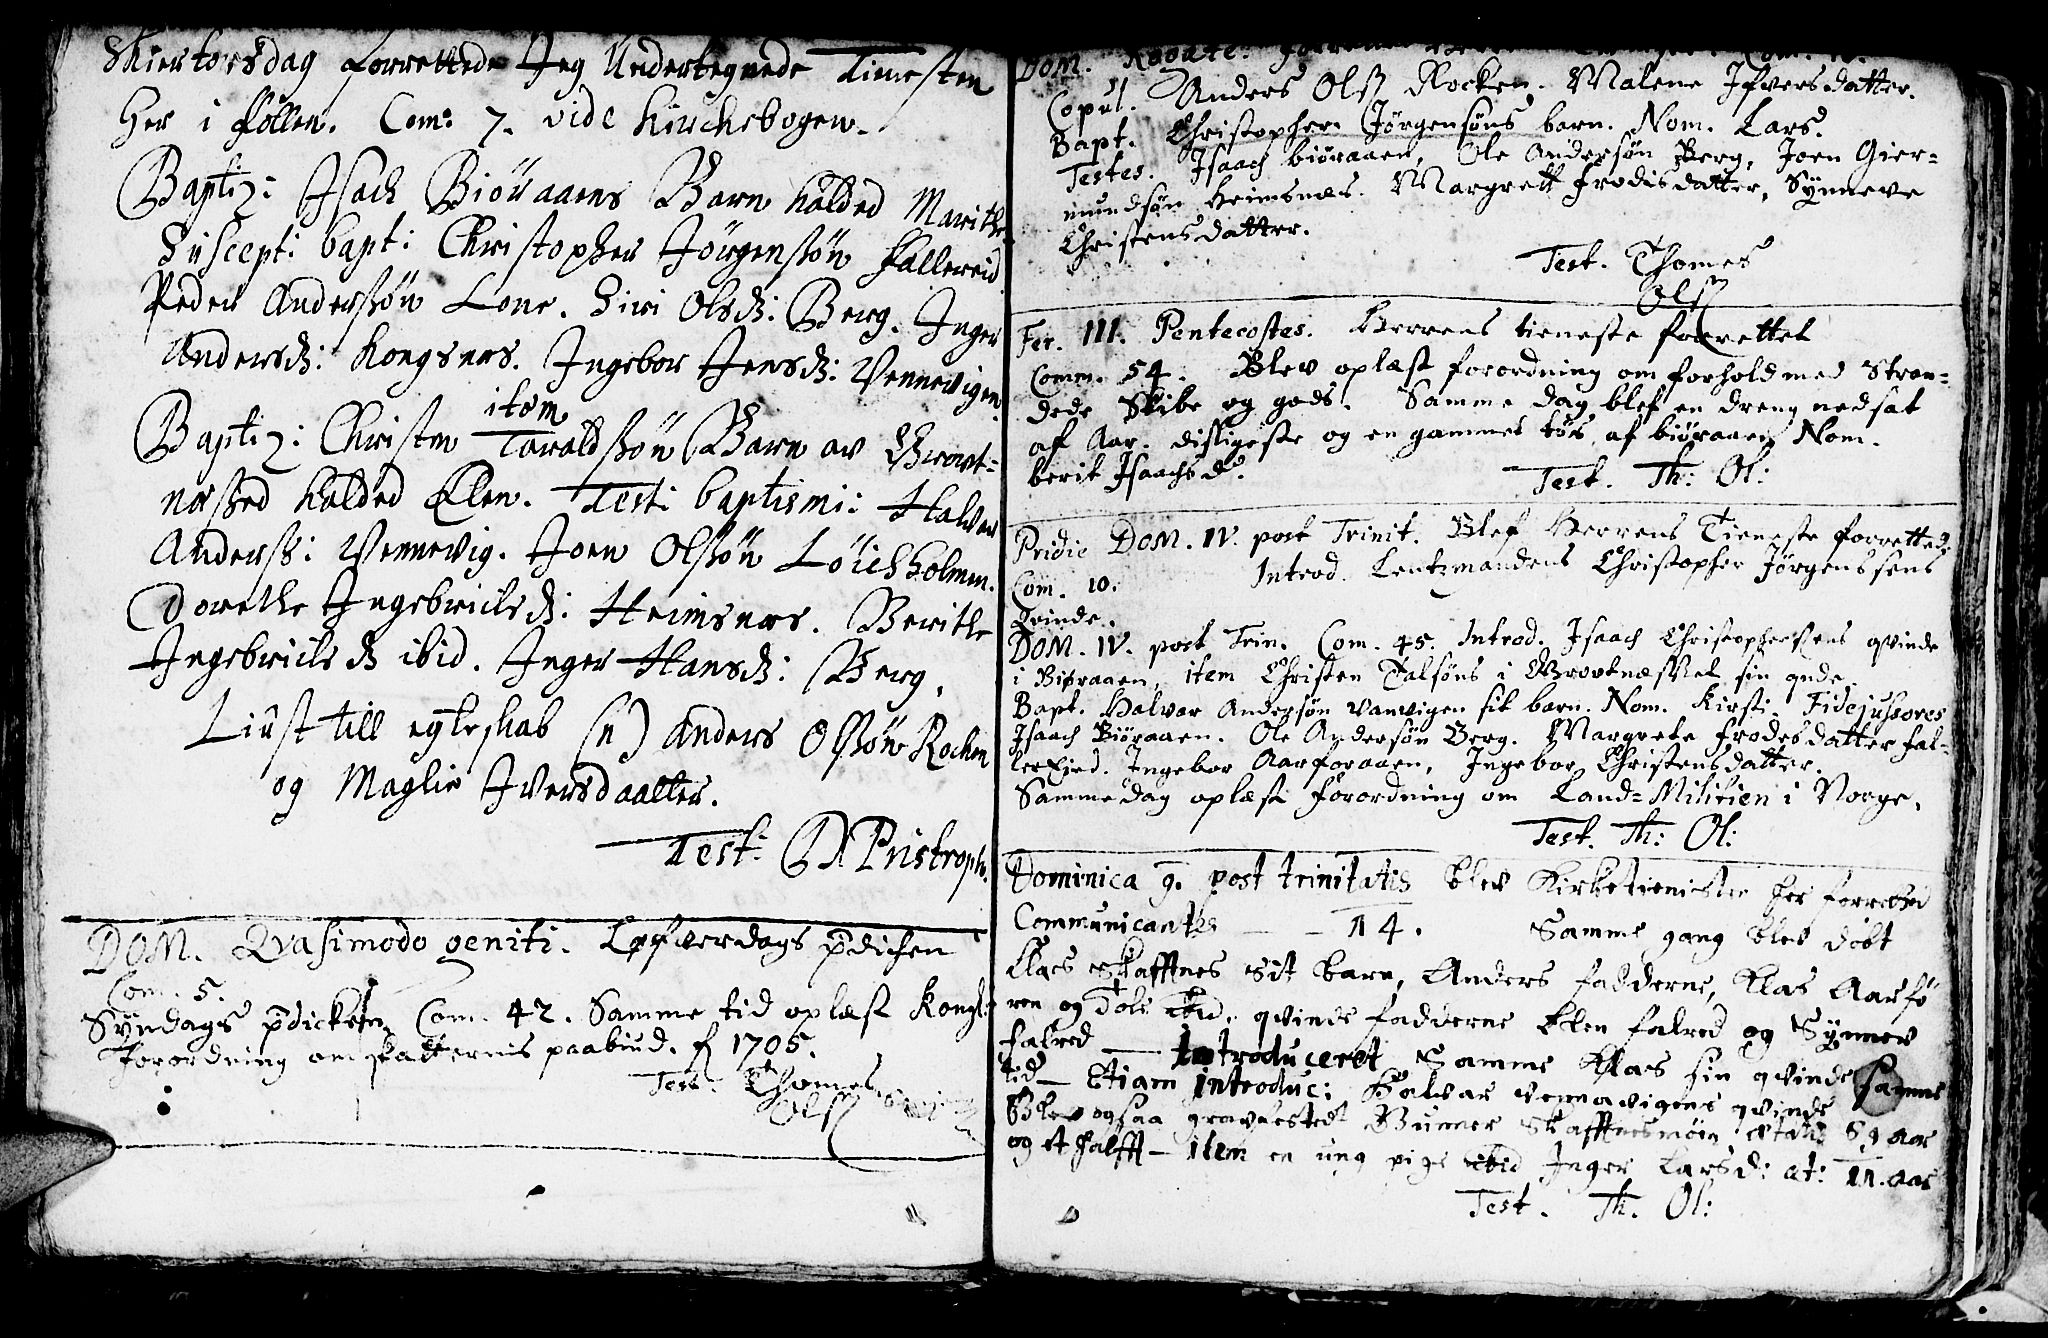 Skiertorsdag forrettede Jeg Undertegnede Tienesten
her i Follen. Com: 7. vide Kirchebogen.
Baptiz: Isach Biöraaens Barn kalded Marithe
Suscept: bapt: Christopher Jörgensön Fallereid
Peder Andersön Lone. Siri Olsd: Berg. Inger
Andersd: Kongsnes. Ingebor Jensd: Vennevigen.
item
Baptiz: Christen Taraldsön Barn av
kalded Elen. Test: baptismi: Halvor
Anders: Vennevig. Joen Olsön
Dorethe Ingebricts d: Heimsnes. Berithe
Ingebricts d ibid. Inger Hansd: Berg.
Liust till egteskab (n) Anders Olsön Rochen
og Maglie Iversdaatter.
Test: Pristroph.
DOM. Qvasimodo geniti. Løfverdags pdichen
Com. 5.
Syndags pdicken Com. 42. Samme tid oplæst Kongl:
forordning om skatternis paabiud. 1705.
Test. Thomes
Ols
DOM. Rogate.
Copul. Anders Ols Rocken. Malene Ifversdatter.
Bapt. Christopher Jørgensøns barn. Nom. Lars.
Testes. Isaach biøraaen, Ole Andersøn Berg, Joen Gier-
mundsøn Heimsnæs. Margrett Frodisdatter, Synneve
Christensdatter.
Test. Thomes
Ols
Fer. III. Pentecostes. Herrens tieneste forrettet
Comm. 54. Blev oplæst forordning om forhold med Stran-
dede Skibe og gods. Samme dag blef en dreng nedsat
af Aar. disligeste og en gammel af biøraaen Nom.
berit Isaachsd.
Test. Th: Ol:
Pridie DOM. IV. post Trinit. Blef Herrens Tieneste forrettede
Com. 10. Introd. Lentzmandens Christopher Jørgenssens
Qvinde.
DOM. IV. post Trin. Com. 45. Introd. Isaach Christophersens qvinde
i Biøraaen, item Christen Talsøns i sin qnde.
Bapt. Halvar Andersøn Vanvigen sit barn. Nom. Kirsti. Fidejussores
Isaach Biøraaen. Ole Andersøn Berg. Margrete Frodesdatter Fal-
Ingebor Aarforaaen, Ingebor Christensdatter.
Samme dag oplæst forordning om Land-Militien i Norge.
Test. Th: Ol:
Dominica 9. post trinitatis blev Kirketienisten her forretted
Communicantes — — 14. Samme gang blev döbt
Claes Skafftnes sit barn, Anders fadderne, Klas Aarfö
ren og Tols ibid. qvinde fadderne Elen Falred og Synnev
Falred — Introduceret Samme Klas sin qvinde samme
tid — Etiam introduc: Halvar vennavigens qvinde
Blev ogsaa gravfestedt Gunner Skafftnesmöen ætatis 89 aar
og et halfft — item en ung pige ibid Inger Larsd: æt: 11. aar
Test. Th. Ol: